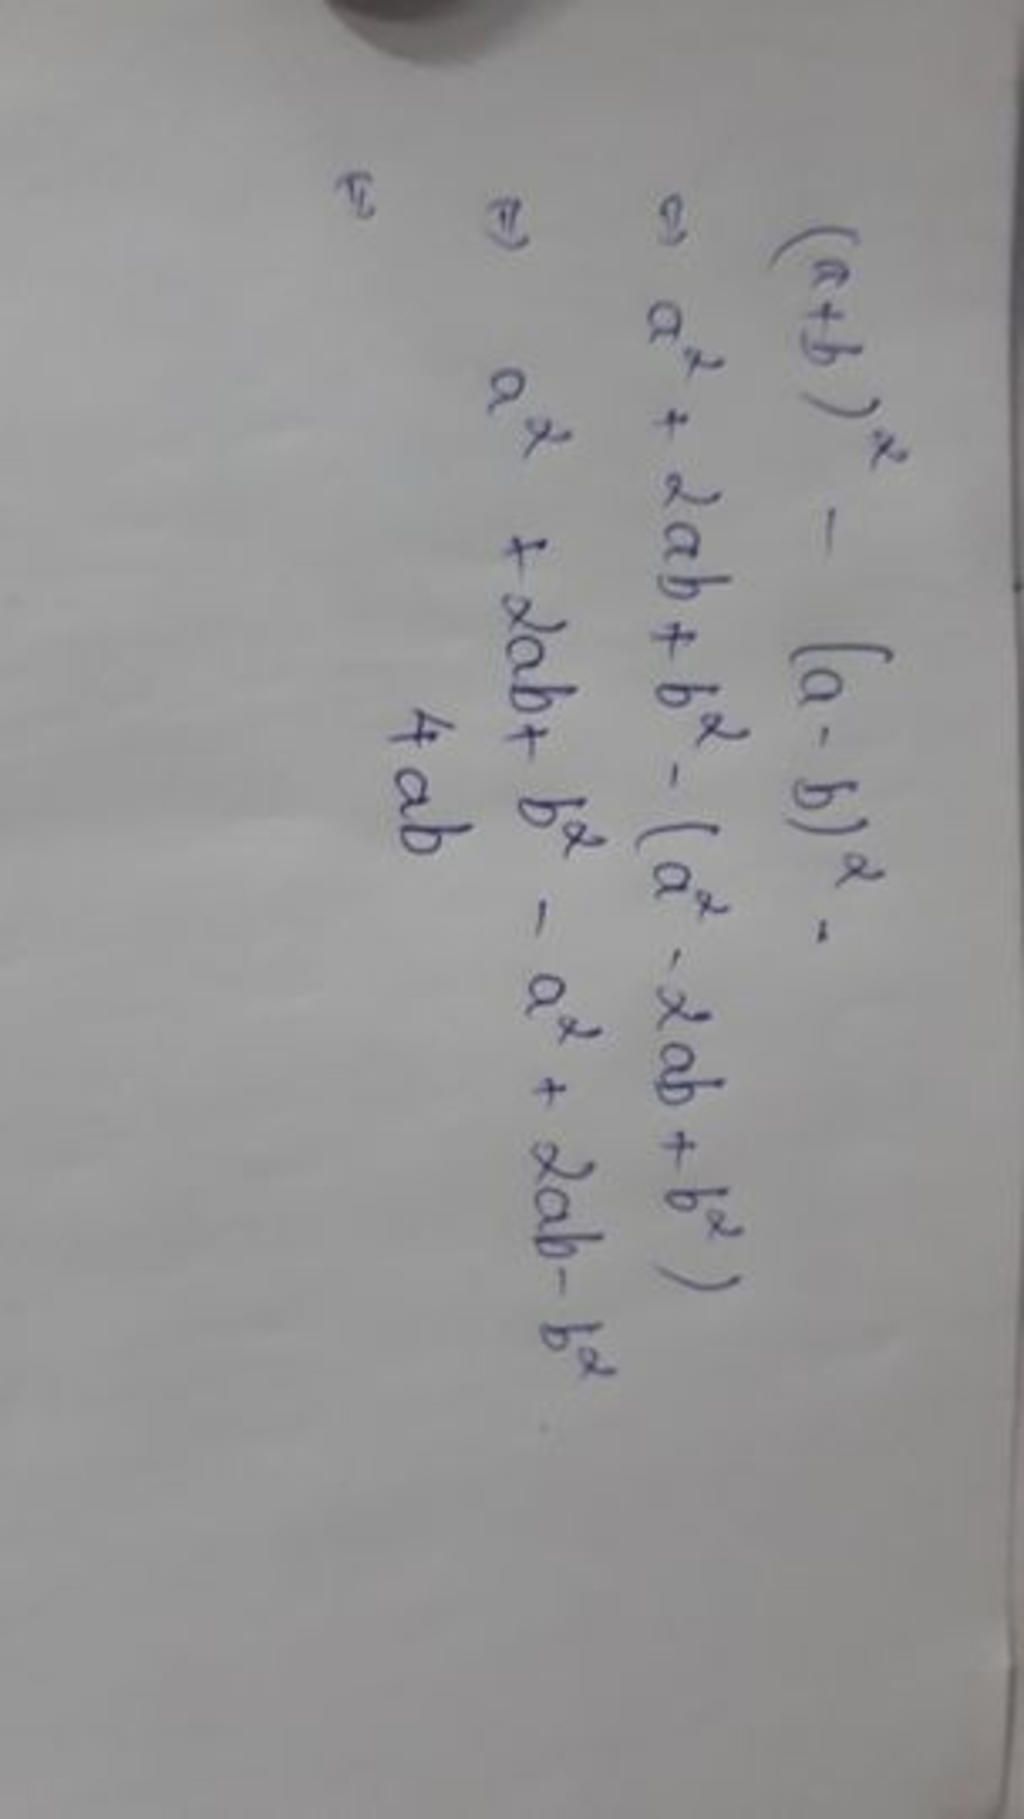 (a+b)² - (a-b)² -
⇒ a² + 2ab + b² - (a² - 2ab + b²)
⇒ a² + 2ab + b² - a² + 2ab - b²
⇒ 4ab